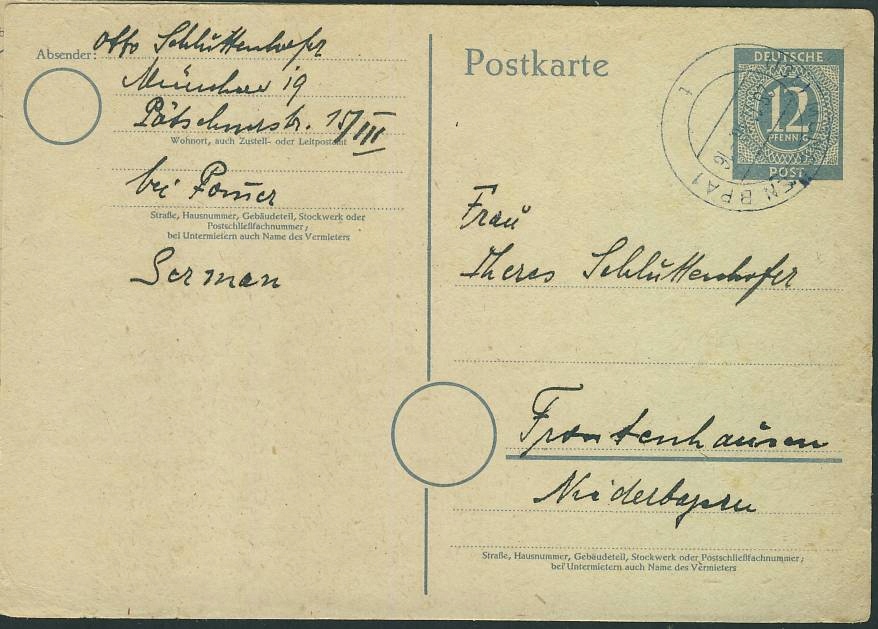 Absender: Otto Schluttenhofer
München 19
Pötschnerstr. 15/III
Wohnort, auch Zustell- oder Leitpostamt
bei
Straße, Hausnummer, Gebäudeteil, Stockwerk oder
Postschließfachnummer;
bei Untermietern auch Name des Vermieters
German
Postkarte
DEUTSCHE
12
PFENNIG
POST
EN BPA1
Frau
Theres Schluttenhofer
Frontenhausen
Niederbayern
Straße, Hausnummer, Gebäudeteil, Stockwerk oder Postschließfachnummer;
bei Untermietern auch Name des Vermieters